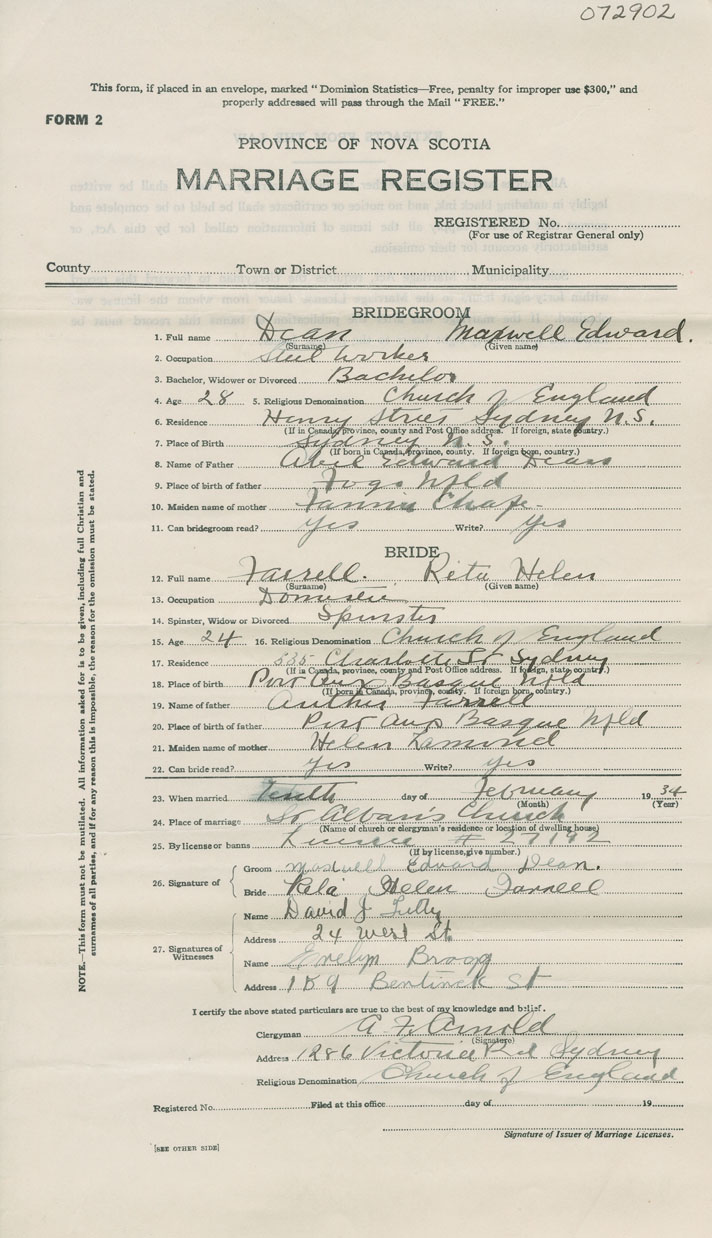 072902
This form, if placed in an envelope, marked "Dominion Statistics—Free, penalty for improper use $300," and
properly addressed will pass through the Mail "FREE."
FORM 2
PROVINCE OF NOVA SCOTIA
MARRIAGE REGISTER
REGISTERED No.
(For use of Registrar General only)
County Town or District Municipality
BRIDEGROOM
1. Full name Dean Maxwell Edward.
(Surname) (Given name)
2. Occupation Steel Worker
3. Bachelor, Widower or Divorced Bachelor
4. Age 28 5. Religious Denomination Church of England
6. Residence Henry Sydney N.S.
(If in Canada, province, county and Post Office address. If foreign, state country.)
7. Place of Birth Sydney N.S.
(If born in Canada, province, county. If foreign born, country.)
8. Name of Father Edward Dean
9. Place of birth of father Fogo Nfld
10. Maiden name of mother Fannie
11. Can bridegroom read? Yes Write? Yes
BRIDE
12. Full name Farrell. Rita Helen
(Surname) (Given name)
13. Occupation Domestic
14. Spinster, Widow or Divorced Spinster
15. Age 24 16. Religious Denomination Church of England
17. Residence 335 Charlotte St Sydney
(If in Canada, province, county and Post Office address. If foreign, state country.)
18. Place of birth Port Aux Basque Nfld
(If born in Canada, province, county. If foreign born, country.)
19. Name of father Farrell
20. Place of birth of father Port Aux Basque Nfld
21. Maiden name of mother Helen Lamond
22. Can bride read? Yes Write? Yes
23. When married tenth day of February 1934
(Month) (Year)
24. Place of marriage St Alban's Church
(Name of church or clergyman's residence or location of dwelling house)
25. By license or banns License # 27192
(If by license, give number.)
26. Signature of Groom Maxwell Edward Dean.
Bride Rita Helen Farrell
27. Signatures of Witnesses Name David J
Address 24 West St.
Name Evelyn
Address 159 Bentinck St
I certify the above stated particulars are true to the best of my knowledge and belief.
Clergyman A F. Arnold
(Signature)
Address 1286 Victoria Rd Sydney
Religious Denomination Church of England
Registered No. Filed at this office day of 19
Signature of Issuer of Marriage Licenses.
[SEE OTHER SIDE]
NOTE.—This form must not be mutilated. All information asked for is to be given, including full Christian and
surnames of all parties, and if for any reason this is impossible, the reason for the omission must be stated.